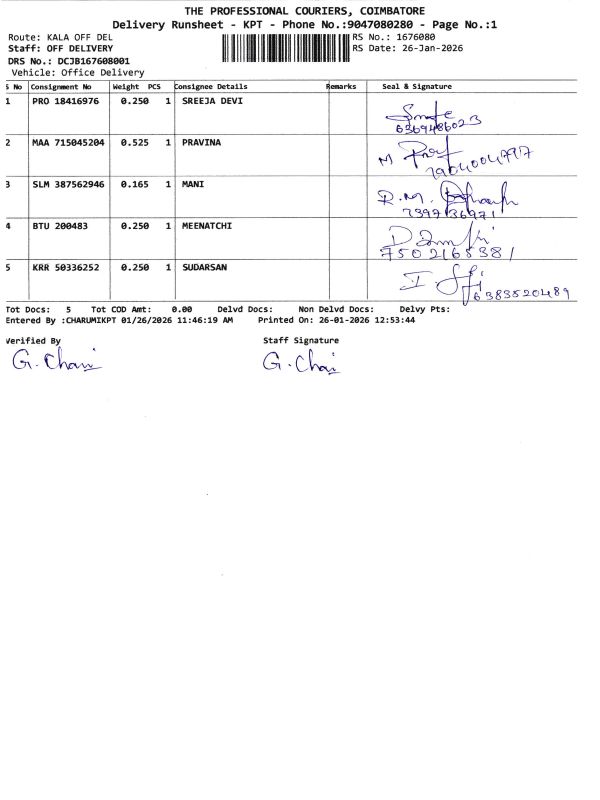 THE PROFESSIONAL COURIERS, COIMBATORE
Delivery Runsheet - KPT - Phone No.:9047080280 - Page No.:1
Route: KALA OFF DEL RS No.: 1676080
Staff: OFF DELIVERY RS Date: 26-Jan-2026
DRS No.: DCJB167608001
Vehicle: Office Delivery
S No Consignment No Weight PCS Consignee Details Remarks Seal & Signature
1 PRO 18416976 0.250 1 SREEJA DEVI
6369486023
2 MAA 715045204 0.525 1 PRAVINA
M
3 SLM 387562946 0.165 1 MANI
R.M.
4 BTU 200483 0.250 1 MEENATCHI
7502165381
5 KRR 50336252 0.250 1 SUDARSAN
6383520489
Tot Docs: 5 Tot COD Amt: 0.00 Delvd Docs: Non Delvd Docs: Delvy Pts:
Entered By :CHARUMIKPT 01/26/2026 11:46:19 AM Printed On: 26-01-2026 12:53:44
Verified By Staff Signature